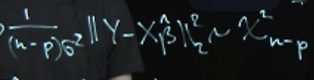 \frac{1}{(n-p)\sigma^2} \|Y - X\hat{\beta}\|_2^2 \sim \chi^2_{n-p}